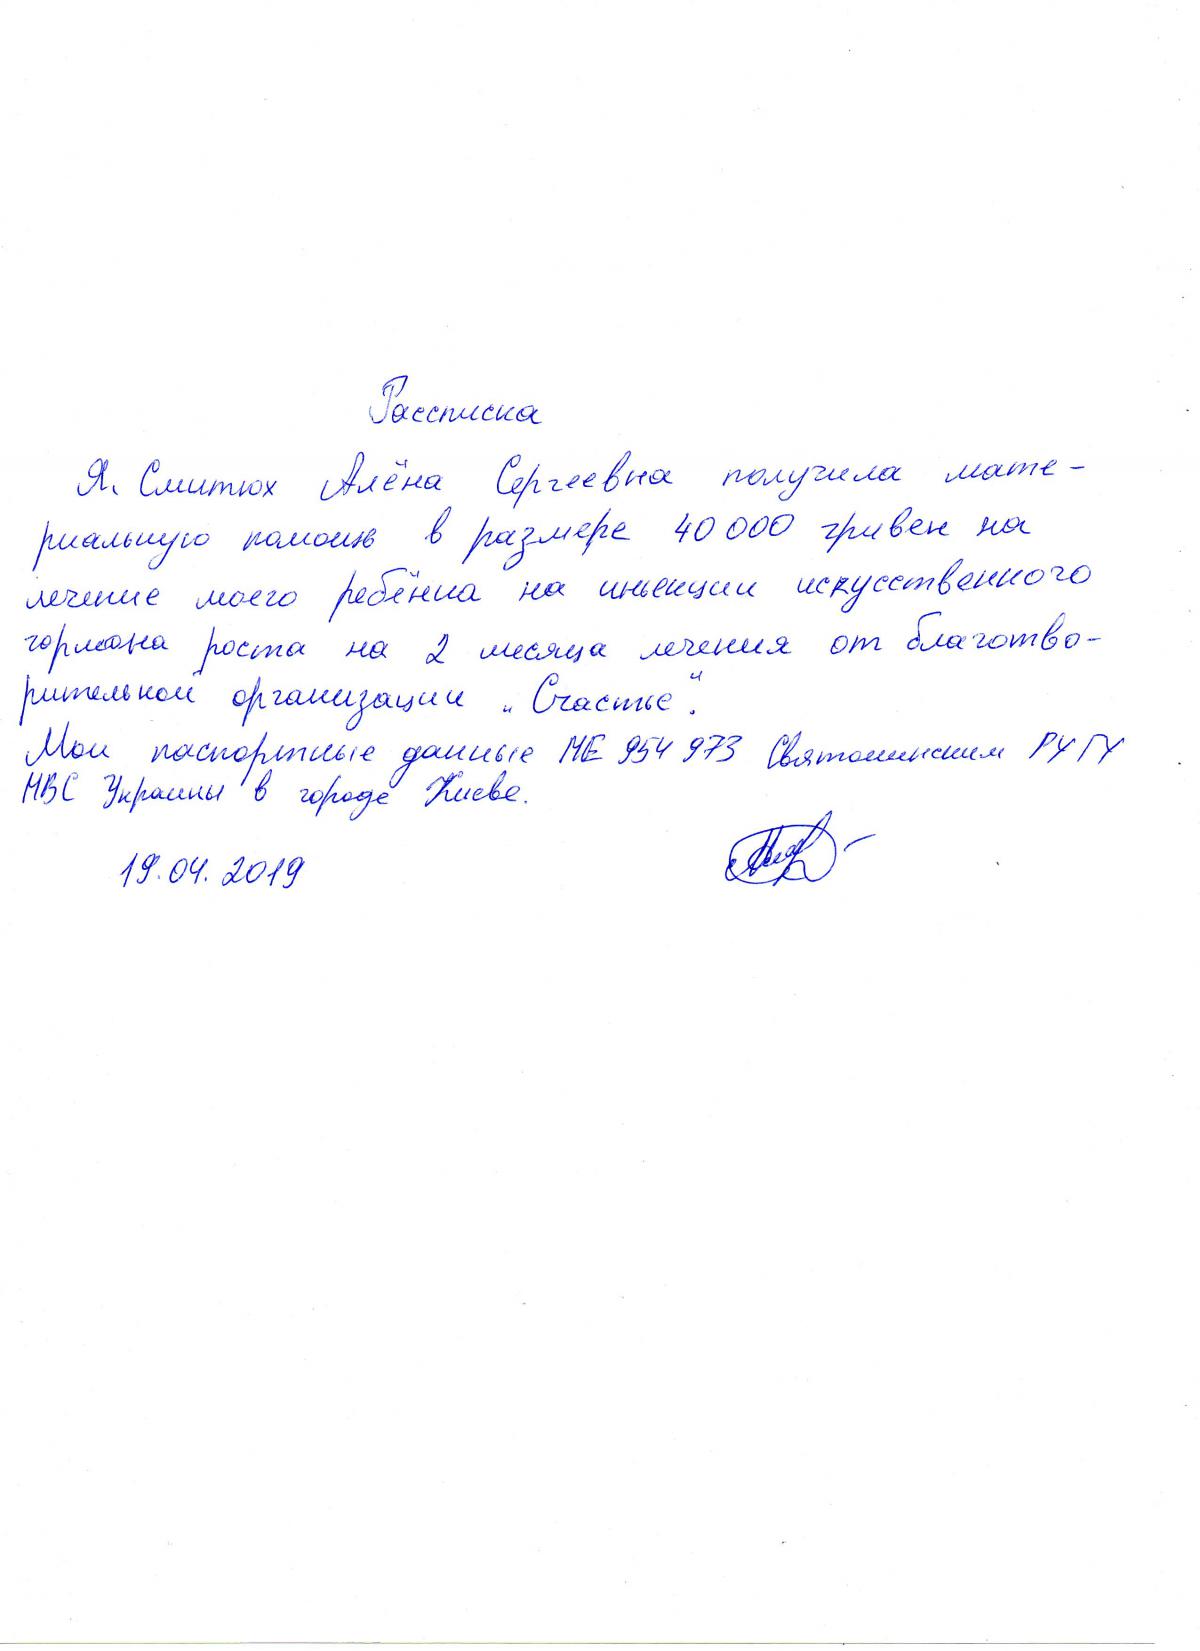 Рассписка
Я, Смитюх Алёна Сергеевна получила мате-
риальную помощь в размере 40 000 гривен на
лечение моего ребёнка на инъекции искусственного
гормона роста на 2 месяца лечения от благотво-
рительной организации "Счастье".
Мои паспортные данные МЕ 954 973 Святошинским РУГУ
МВС Украины в городе Киеве.
19.04.2019